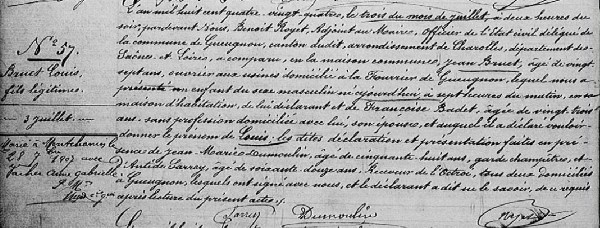 L'an mil huit cent quatre-vingt-quatre, le trois du mois de juillet, à deux heures du
soir, pardevant Nous, Benoît Royet, Adjoint au Maire, Officier de l'Etat civil délégué de
la commune de Gueugnon, canton dudit, arrondissement de Charolles, département de
Saône-et-Loire, a comparu, en la maison commune, Jean Bruet, âgé de vingt-
sept ans, ouvrier aux usines domicilié à la Fourrier de Gueugnon, lequel nous a
présenté un enfant du sexe masculin né cejourd'hui, à sept heures du matin, en sa
maison d'habitation, de lui déclarant et de Françoise Budet, âgée de vingt-trois
ans, sans profession domiciliée avec lui, son épouse, et auquel il a déclaré vouloir
donner le prénom de Louis. les dites déclaration et présentation faites en pré-
sence de Jean-Marie Dumoulin, âgé de cinquante huit ans, garde champêtre, et
d'Antide Larrey, âgé de soixante douze ans, Receveur de l'Octroi, tous deux domiciliés
à Gueugnon, lesquels ont signé avec nous, et le déclarant a dit ne le savoir, de ce requis
après lecture du présent acte.
Larrey Dumoulin
N° 57.
Bruet Louis,
fils légitime.
3 juillet.
Marié à
1907 avec
Vacher Anne Gabrielle